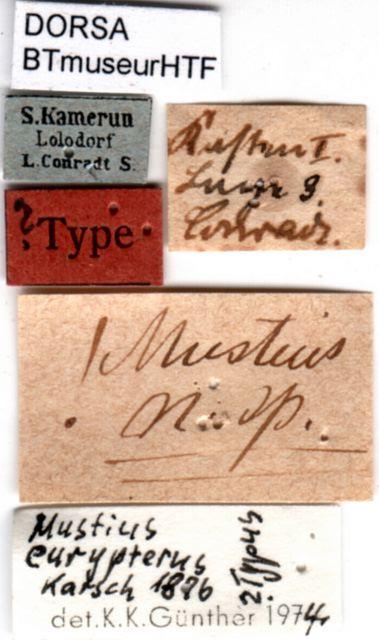 DORSA
BTmuseurHTF
S. Kamerun
Lolodorf
L. Conradt S.
Kasten I.
3.
Conradt.
? Type
Mustius
n. sp.
Mustius
eurypterus
Karsch 1896
? Typus
det. K. K. Günther 1974